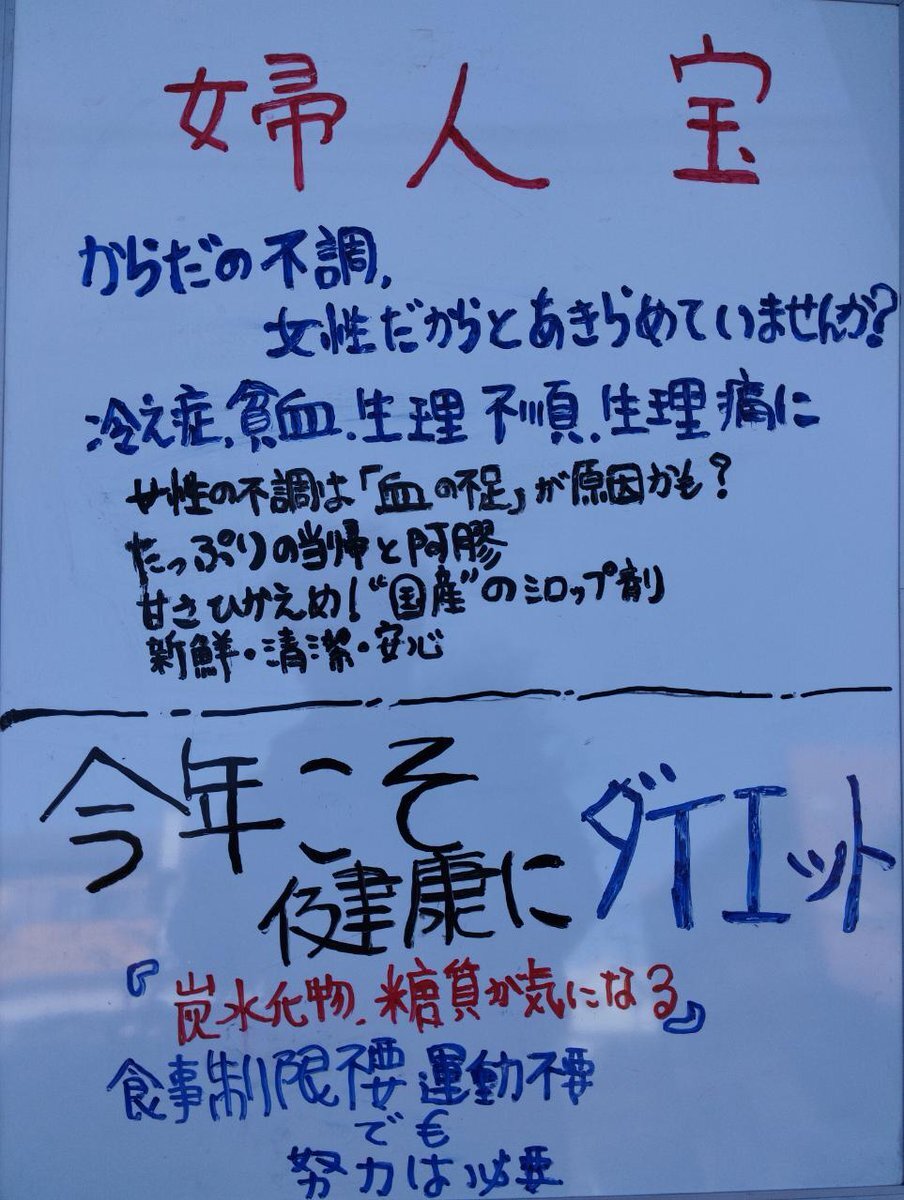 婦人宝
からだの不調、
女性だからとあきらめていませんか?
冷え症、貧血、生理不順、生理痛に
女性の不調は「血の不足」が原因かも?
たっぷりの当帰と阿膠
甘さひかえめ!“国産”のシロップ剤
新鮮・清潔・安心
今年こそ
健康にダイエット
『炭水化物、糖質が気になる』
食事制限不要 運動不要
でも
努力は必要